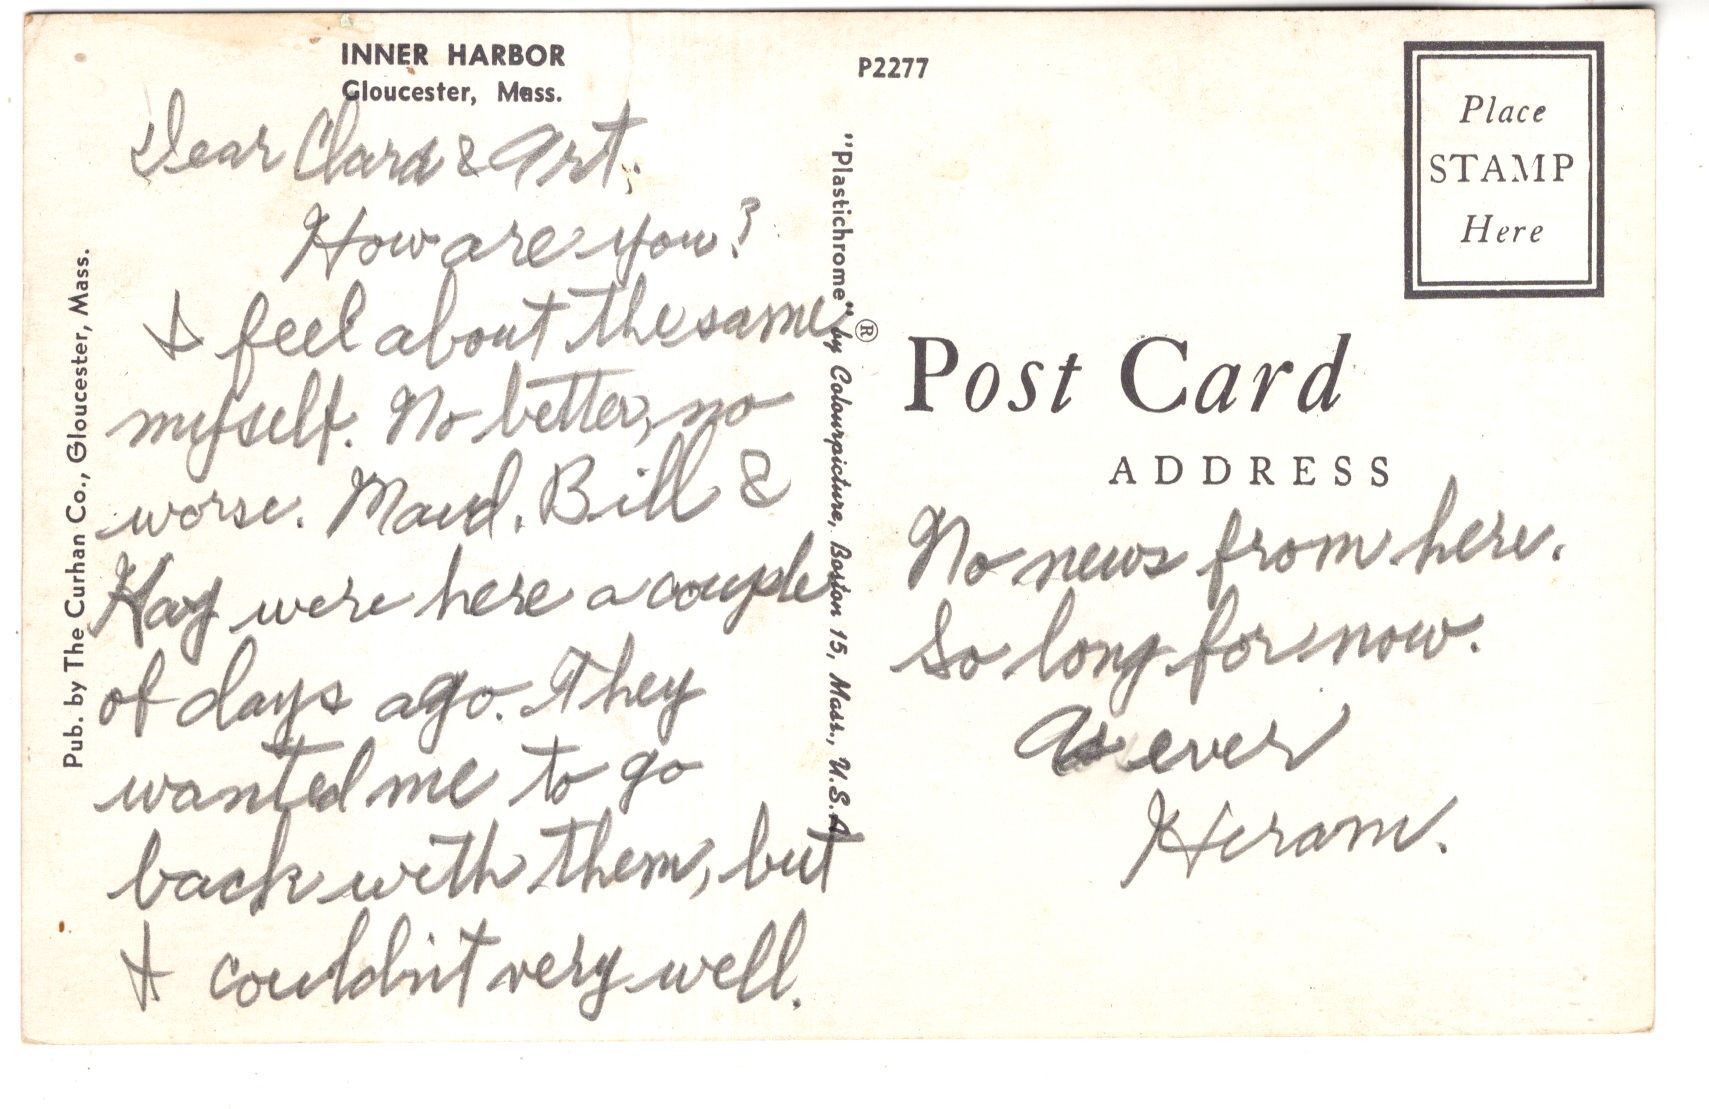 INNER HARBOR
Gloucester, Mass.
P2277
Place
STAMP
Here
Pub. by The Curhan Co., Gloucester, Mass.
"Plastichrome"® by Colourpicture, Boston 15, Mass., U.S.A
Post Card
ADDRESS
Dear Clara & Art,
How are you?
I feel about the same
myself. No better, no
worse. Maud, Bill &
Kay were here a couple
of days ago. They
wanted me to go
back with them, but
I couldn't very well.
No news from here.
So long for now.
As ever
Hiram.